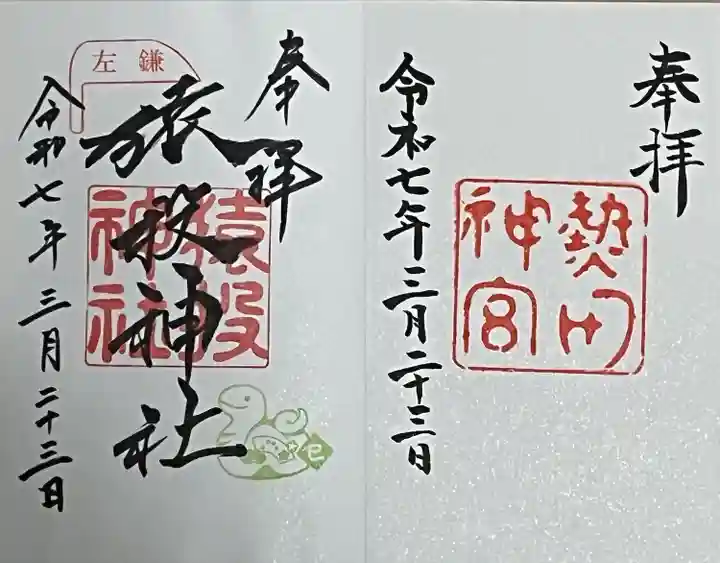 奉拝
熱田
神宮
令和七年三月二十三日
奉拝
左鎌
猿投神社
猿投
神社
巳
令和七年三月二十三日